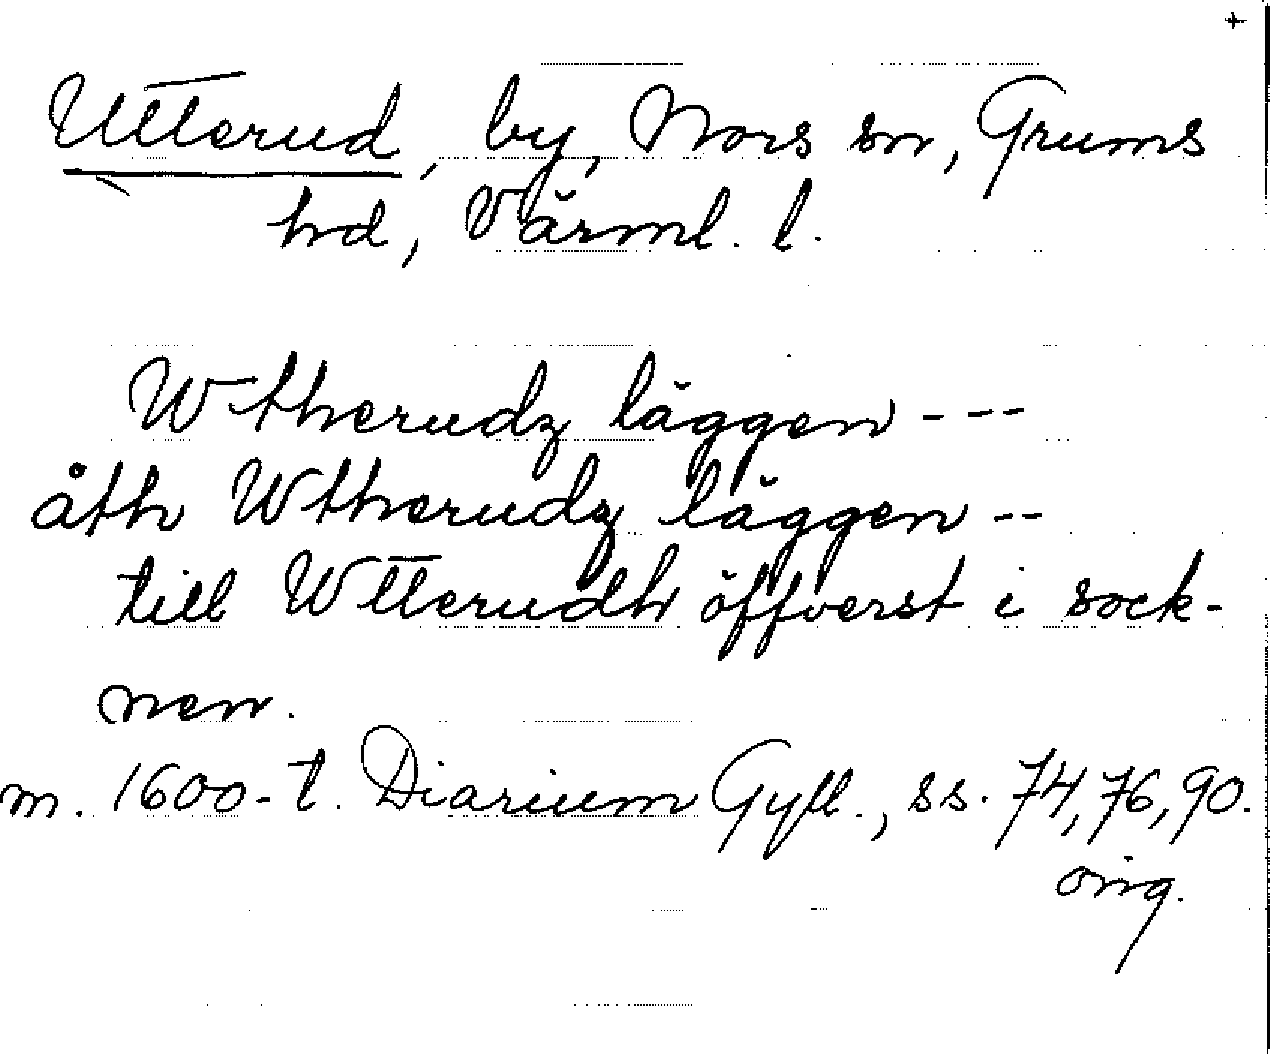 +
Utterud, by, Nors sn, Grums
hd, Värml. l.
Wtherudz läggen ---
åth Wtherudz läggen --
till Wtterudh öffverst i sock-
nen.
m. 1600-t. Diarium Gyll., ss. 74, 76, 90.
orig.